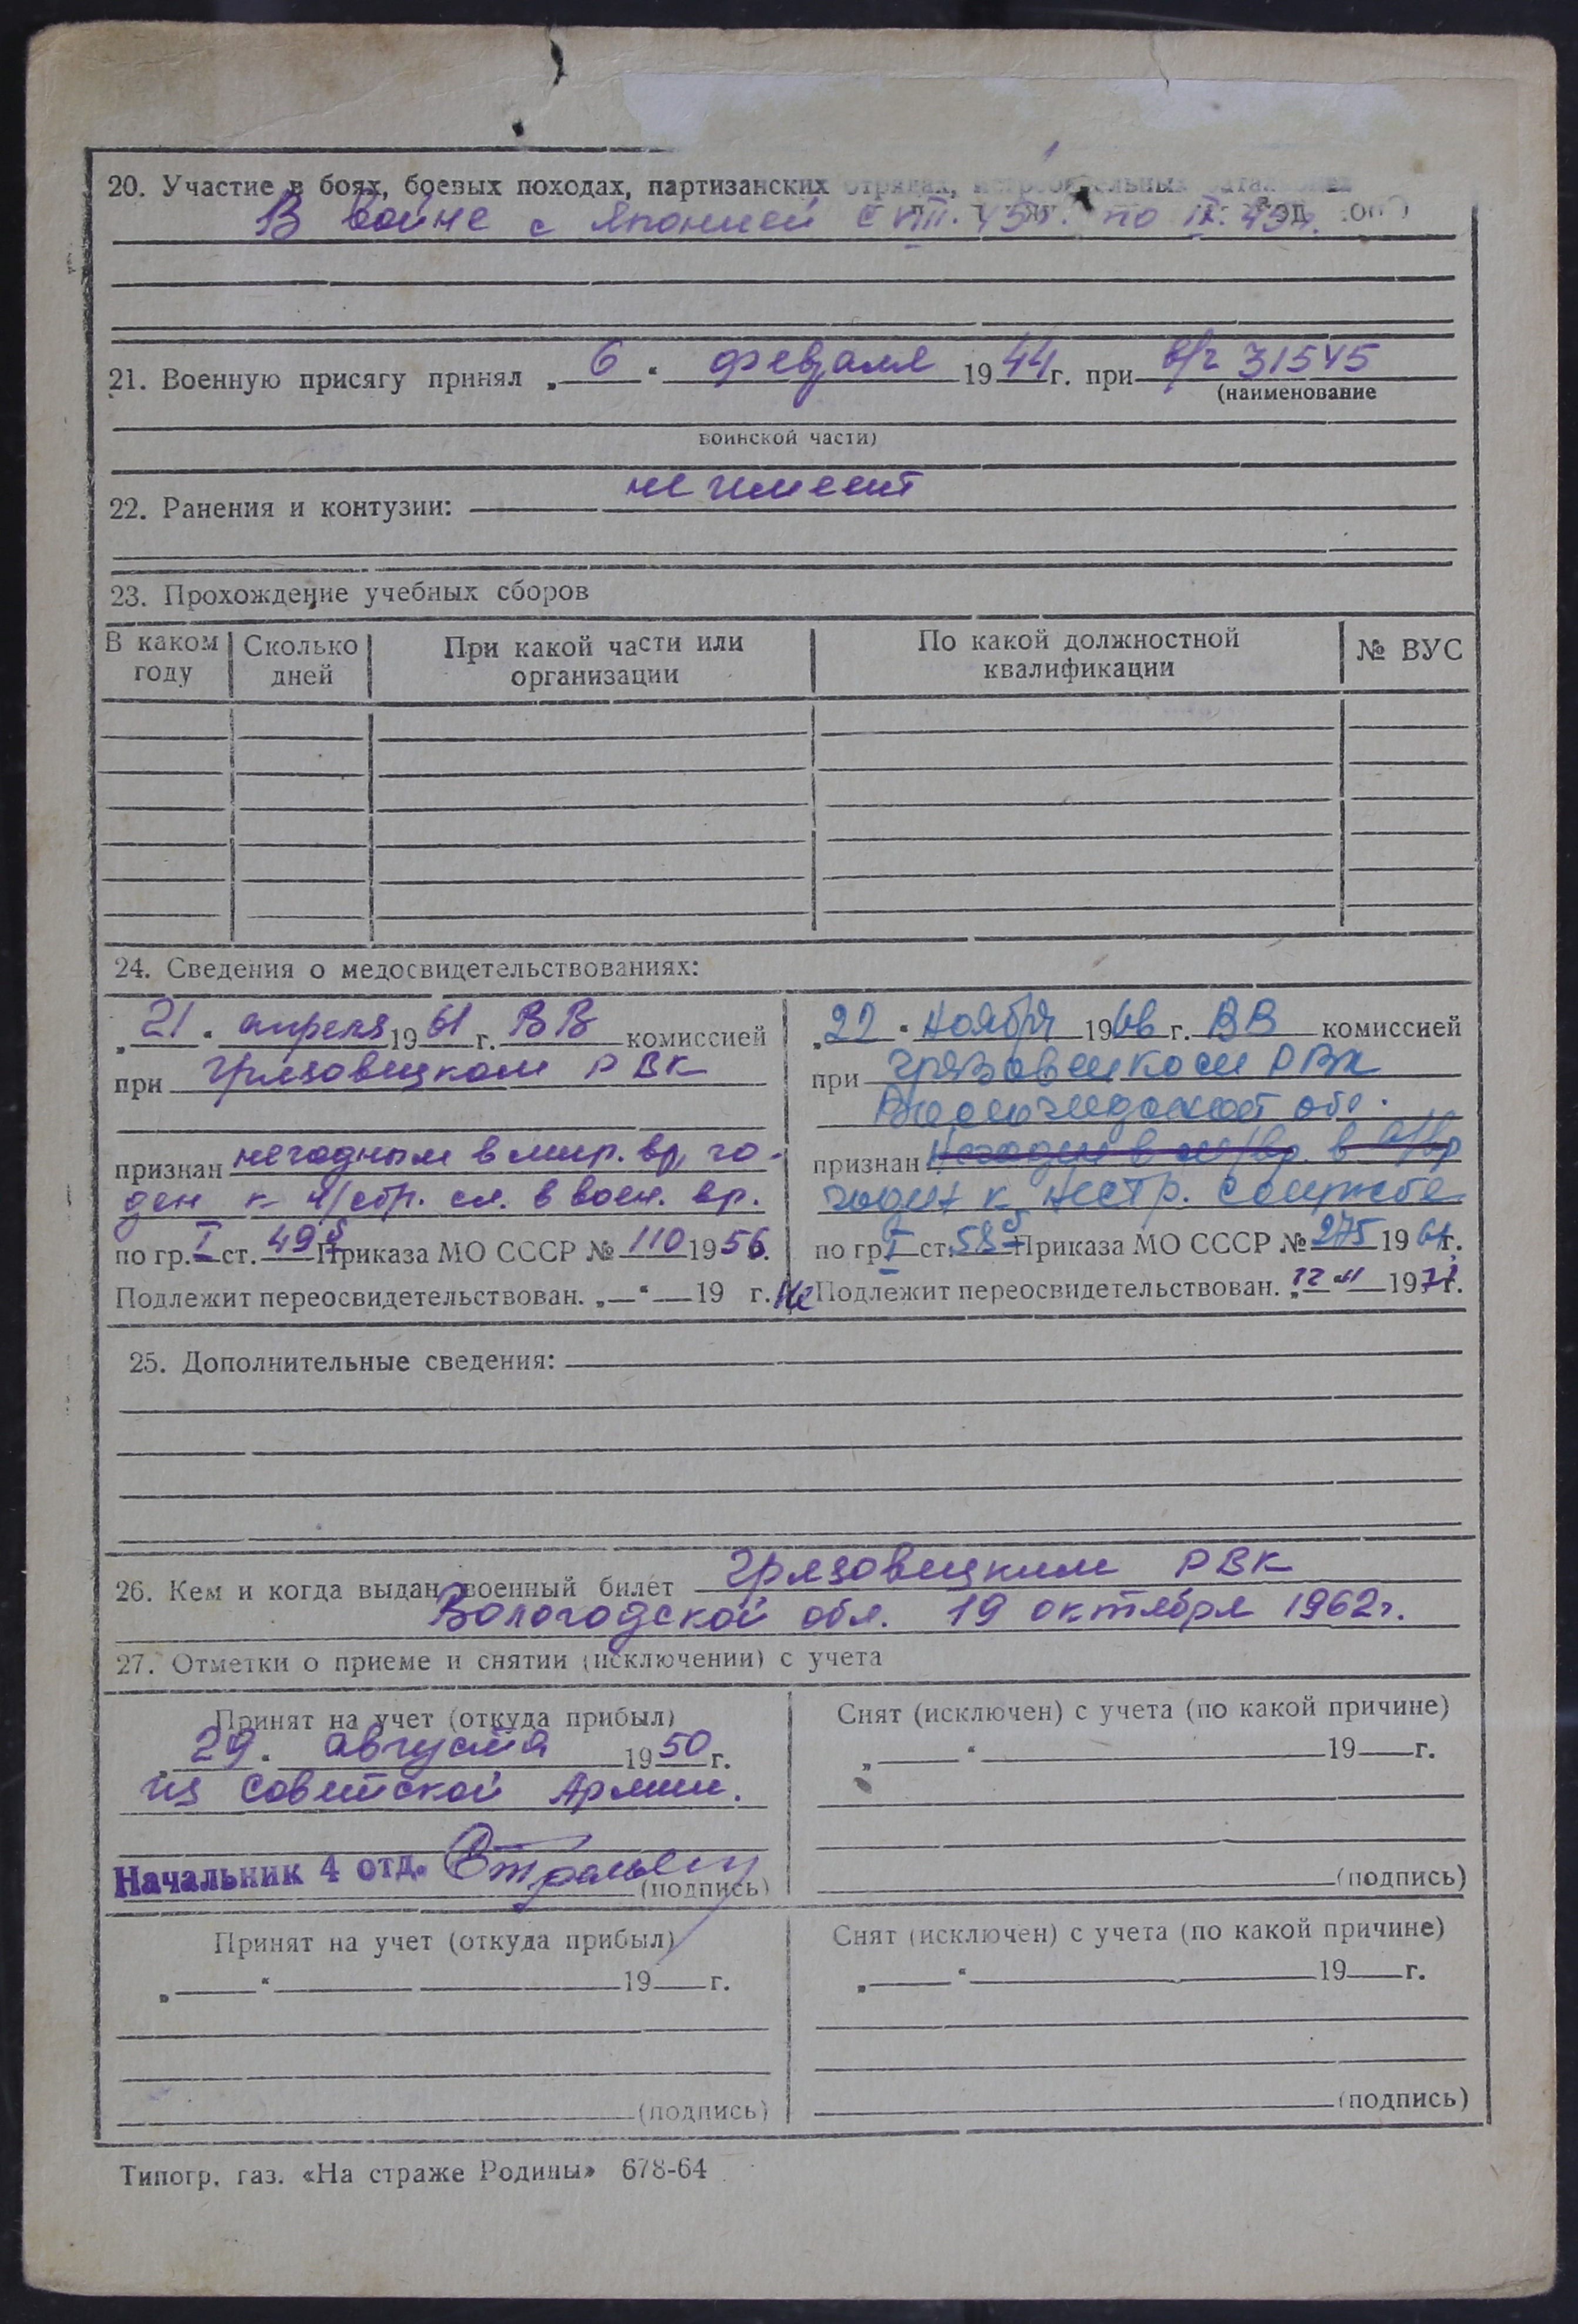 20. Участие в боях, боевых походах, партизанских отрядах, истребительных батальонах
В войне с Японией с VIII. 45г. по IX. 45г.
21. Военную присягу принял „ 6 “ февраля 1944г. при в/ч 31545
(наименование
воинской части)
22. Ранения и контузии: не имеет
23. Прохождение учебных сборов
В каком году
Сколько дней
При какой части или организации
По какой должностной квалификации
№ ВУС
24. Сведения о медосвидетельствованиях:
„21“ апреля 1961 г. ВВ комиссией
при Грязовецком РВК
признан негодным в мир. вр, го-
ден к н/стр. сл. в воен. вр.
по гр. I ст. 49б Приказа МО СССР № 110 1956.
Подлежит переосвидетельствован. „—“ — 19 г.
„22“ Ноября 1966 г. ВВ комиссией
при Грязовецком РВК
Вологодской обл.
признан Негоден в м/вр. в в/вр
годен к нестр. службе
по гр. I ст. 58б Приказа МО СССР № 275 1964г.
Не Подлежит переосвидетельствован. „ 11 197 г.
25. Дополнительные сведения:
26. Кем и когда выдан военный билет Грязовецким РВК
Вологодской обл. 19 октября 1962г.
27. Отметки о приеме и снятии (исключении) с учета
Принят на учет (откуда прибыл)
„29“ августа 1950г.
из Советской Армии.
Начальник 4 отд.
(подпись)
Снят (исключен) с учета (по какой причине)
„ “ 19 г.
(подпись)
Принят на учет (откуда прибыл)
„ “ 19 г.
(подпись)
Снят (исключен) с учета (по какой причине)
„ “ 19 г.
(подпись)
Типогр. газ. «На страже Родины» 678-64